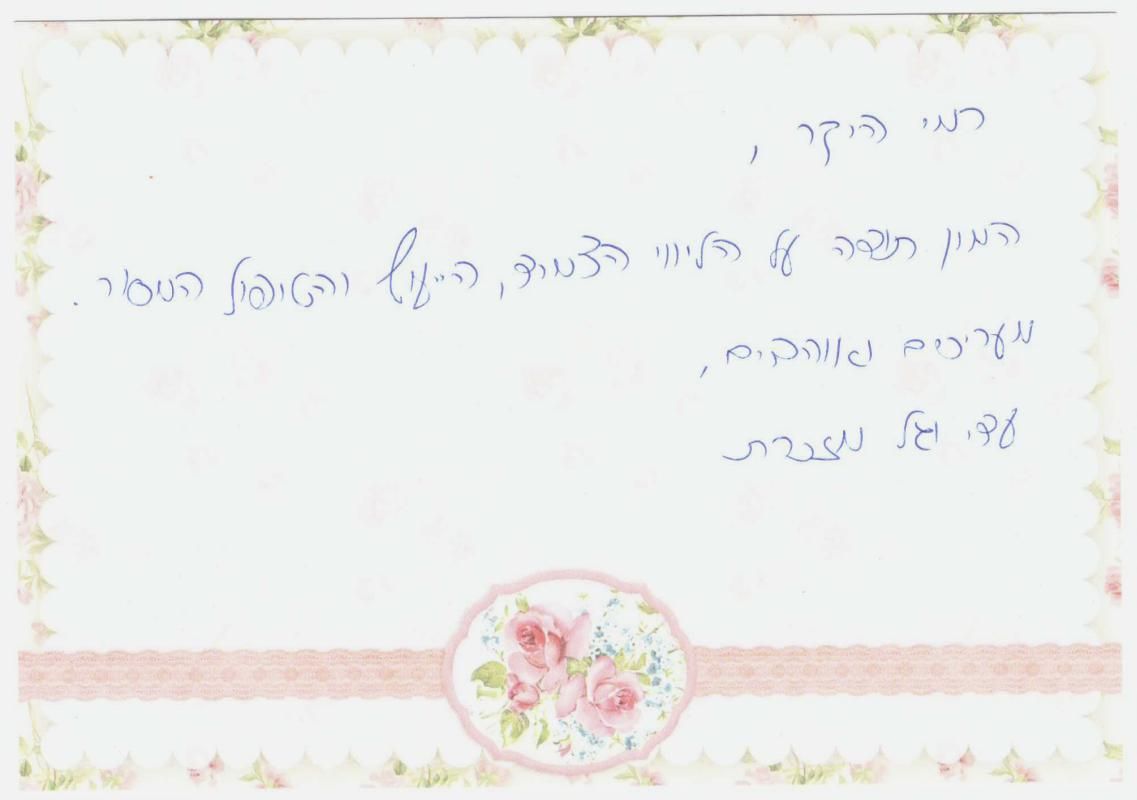 רמי היקר,
המון תודה על הליווי הצמוד, הייעוץ והטיפול המסור.
מעריכים ואוהבים,
עדי וגל מזכרת